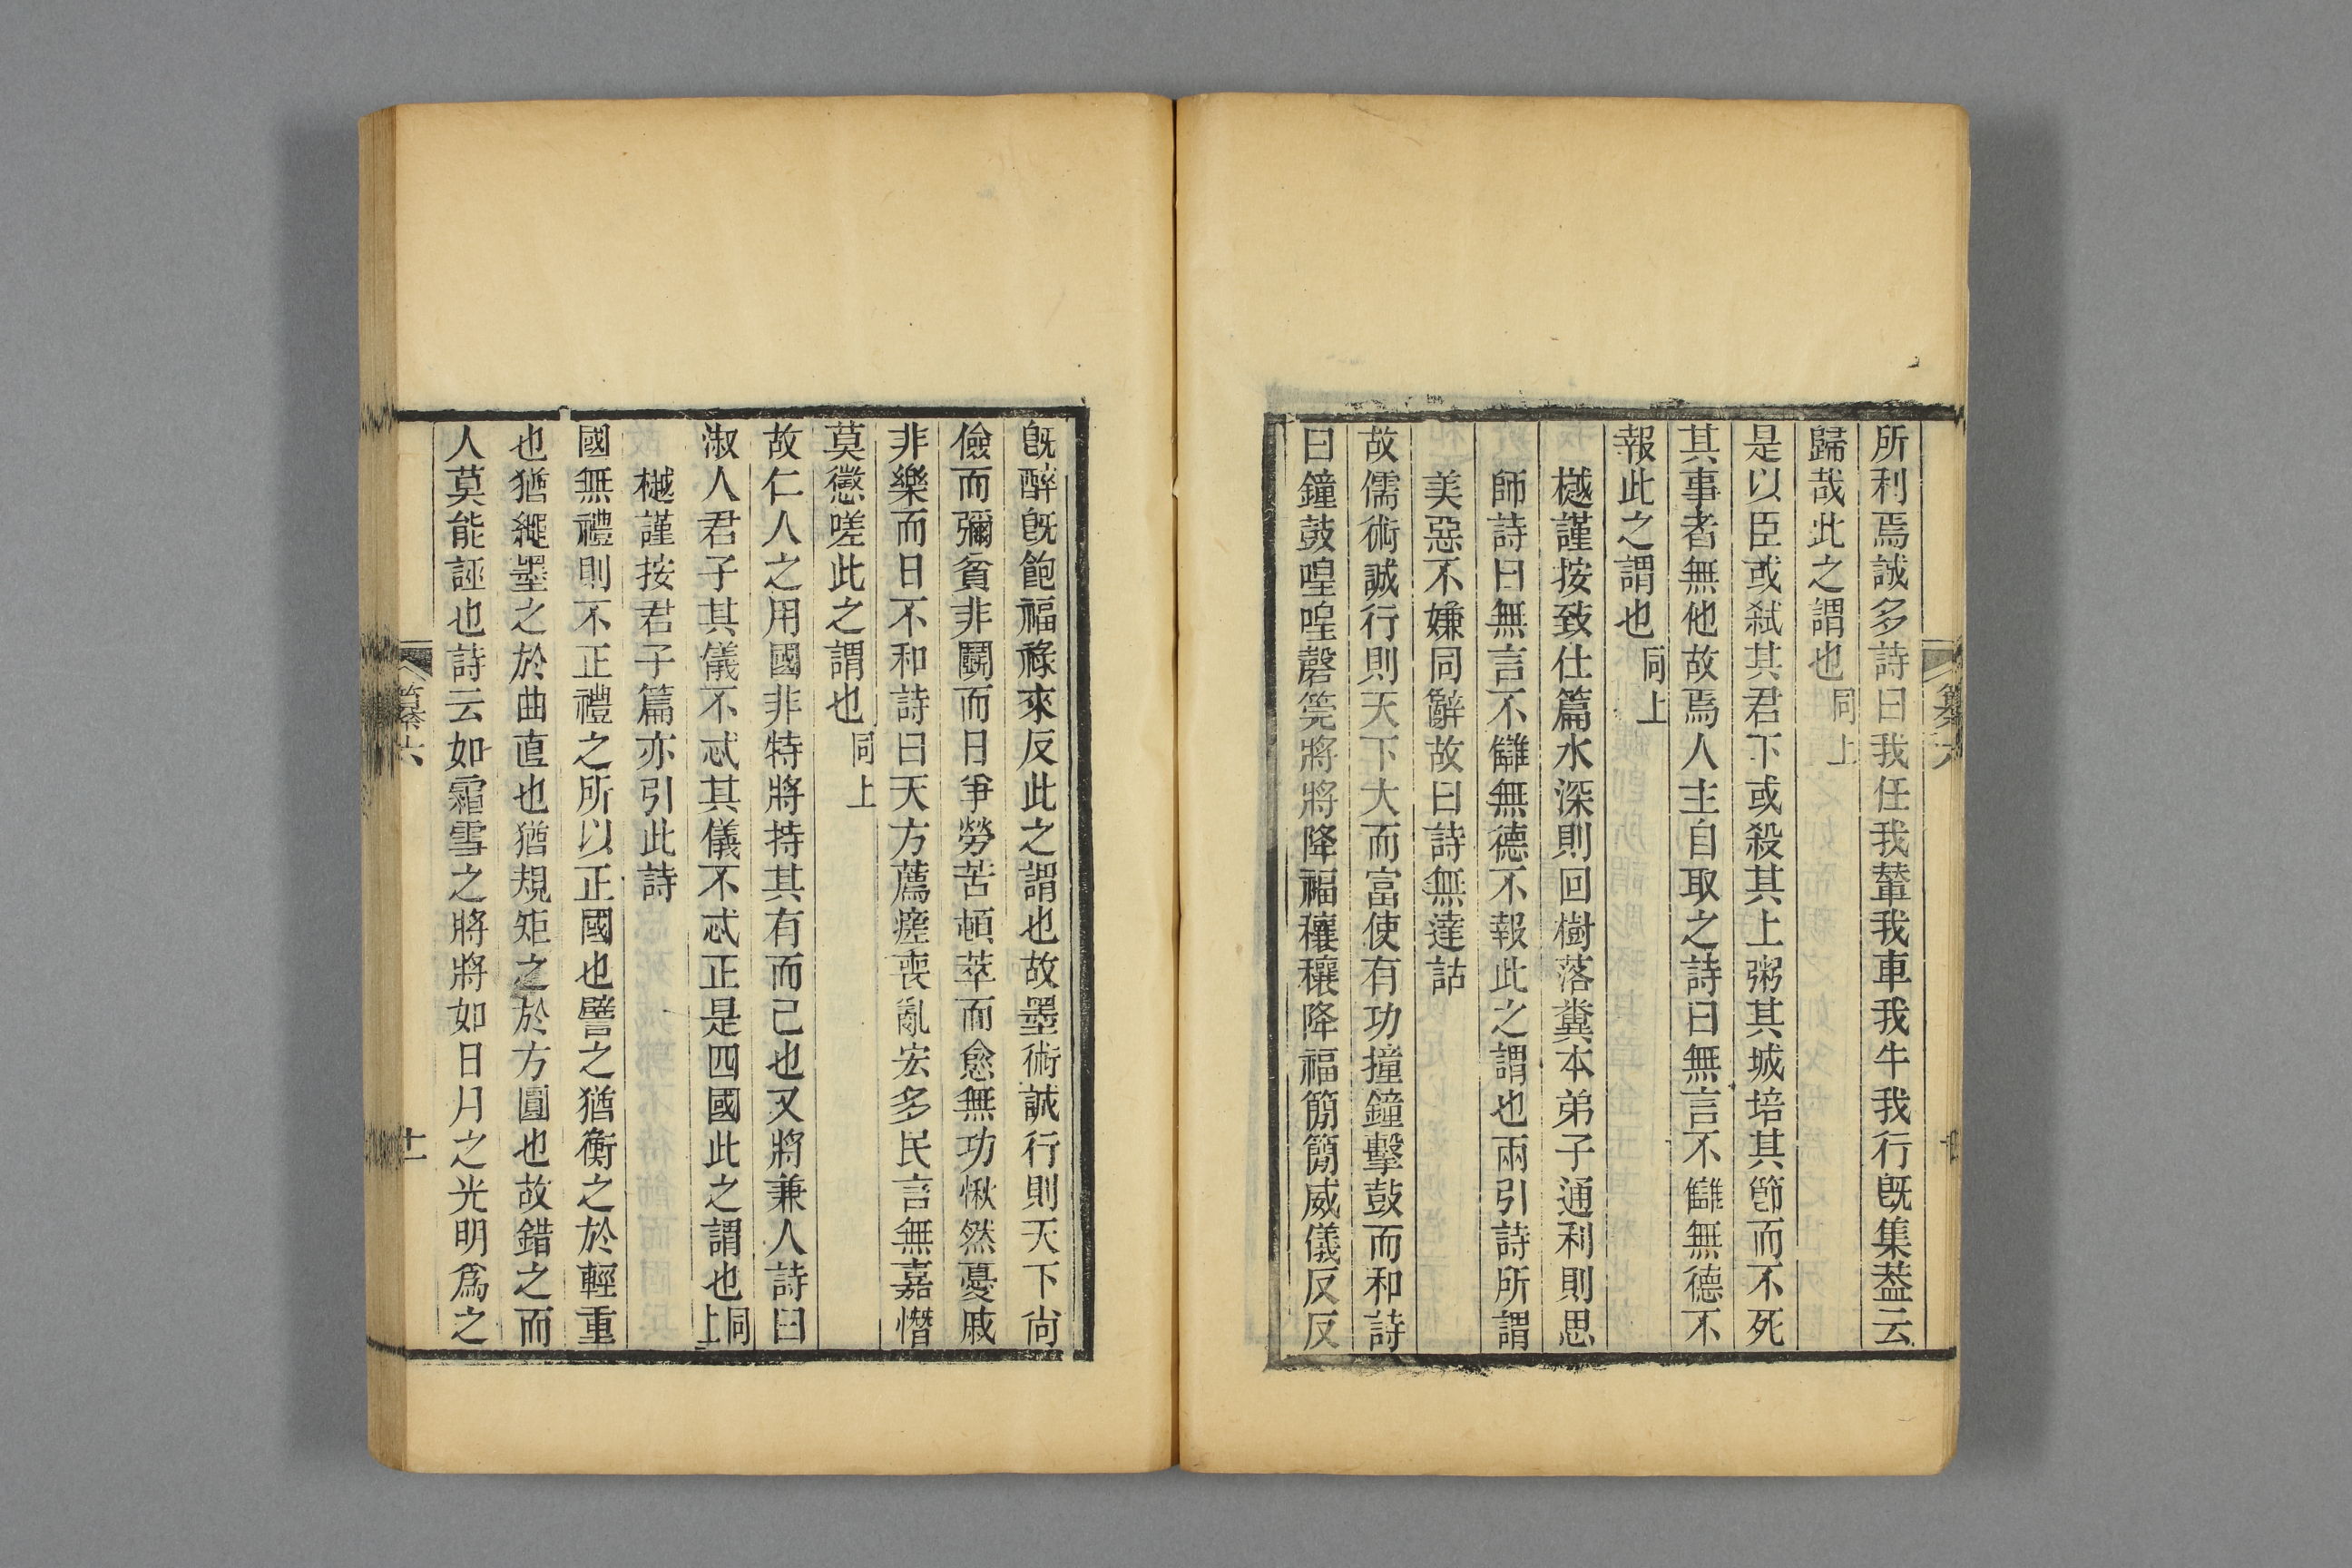 所利焉誠多詩曰我任我輦我車我牛我行旣集葢云
歸哉此之謂也同上
是以臣或弑其君下或殺其上粥其城培其節而不死
其事者無他故焉人主自取之詩曰無言不讎無德不
報此之謂也同上
樾謹按致仕篇水深則回樹落糞本弟子通利則思
師詩曰無言不讎無德不報此之謂也兩引詩所謂
美惡不嫌同辭故曰詩無達詁
故儒術誠行則天下大而富使有功撞鐘擊鼓而和詩
曰鐘鼓喤喤磬筦將將降福穰穰降福簡簡威儀反反
旣醉旣飽福祿來反此之謂也故墨術誠行則天下尙
儉而彌貧非鬬而日爭勞苦頓萃而愈無功愀然憂戚
非樂而日不和詩曰天方薦瘥喪亂宏多民言無嘉憯
莫懲嗟此之謂也同上
故仁人之用國非特將持其有而己也又將兼人詩曰
淑人君子其儀不忒其儀不忒正是四國此之謂也同上
樾謹按君子篇亦引此詩
國無禮則不正禮之所以正國也譬之猶衡之於輕重
也猶繩墨之於曲直也猶規矩之於方圓也故錯之而
人莫能誣也詩云如霜雪之將將如日月之光明爲之
纂六
十一